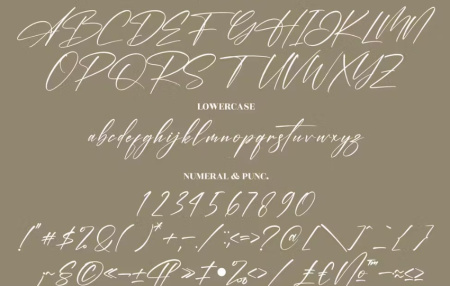 ABCDEFGHIJKLMN
OPQRSTUVWXYZ
LOWERCASE
abcdefghijklmnopqrstuvwxyz
NUMERAL & PUNC.
1234567890
!"#$%&()*+,-./:;<=>?@[\]^_`{}
~§©«¬±¶»‡•‰‹›/£€№™−≈◊